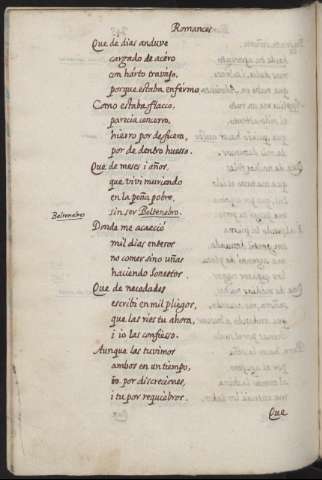 Romances
Que de dias anduve
cargado de acéro
con hárto trabajo,
porque estaba enfermo
Como estaba flaco,
parecia cencerro,
hierro por de fuera,
por de dentro huesso.
Que de meses i años,
que vivi muriendo
en la peña pobre,
sin ser Beltenebro.
Beltenebros
Donde me acaeció
mil dias enteros
no comer sino uñas
haciendo sonetos.
Que de necedades
escribi en mil pliegos,
que las ries tu ahora,
i io las confiesso.
Aunque las tuvimos
ambos en un tiempo,
io por discreciones,
i tu por requiebros.
Que